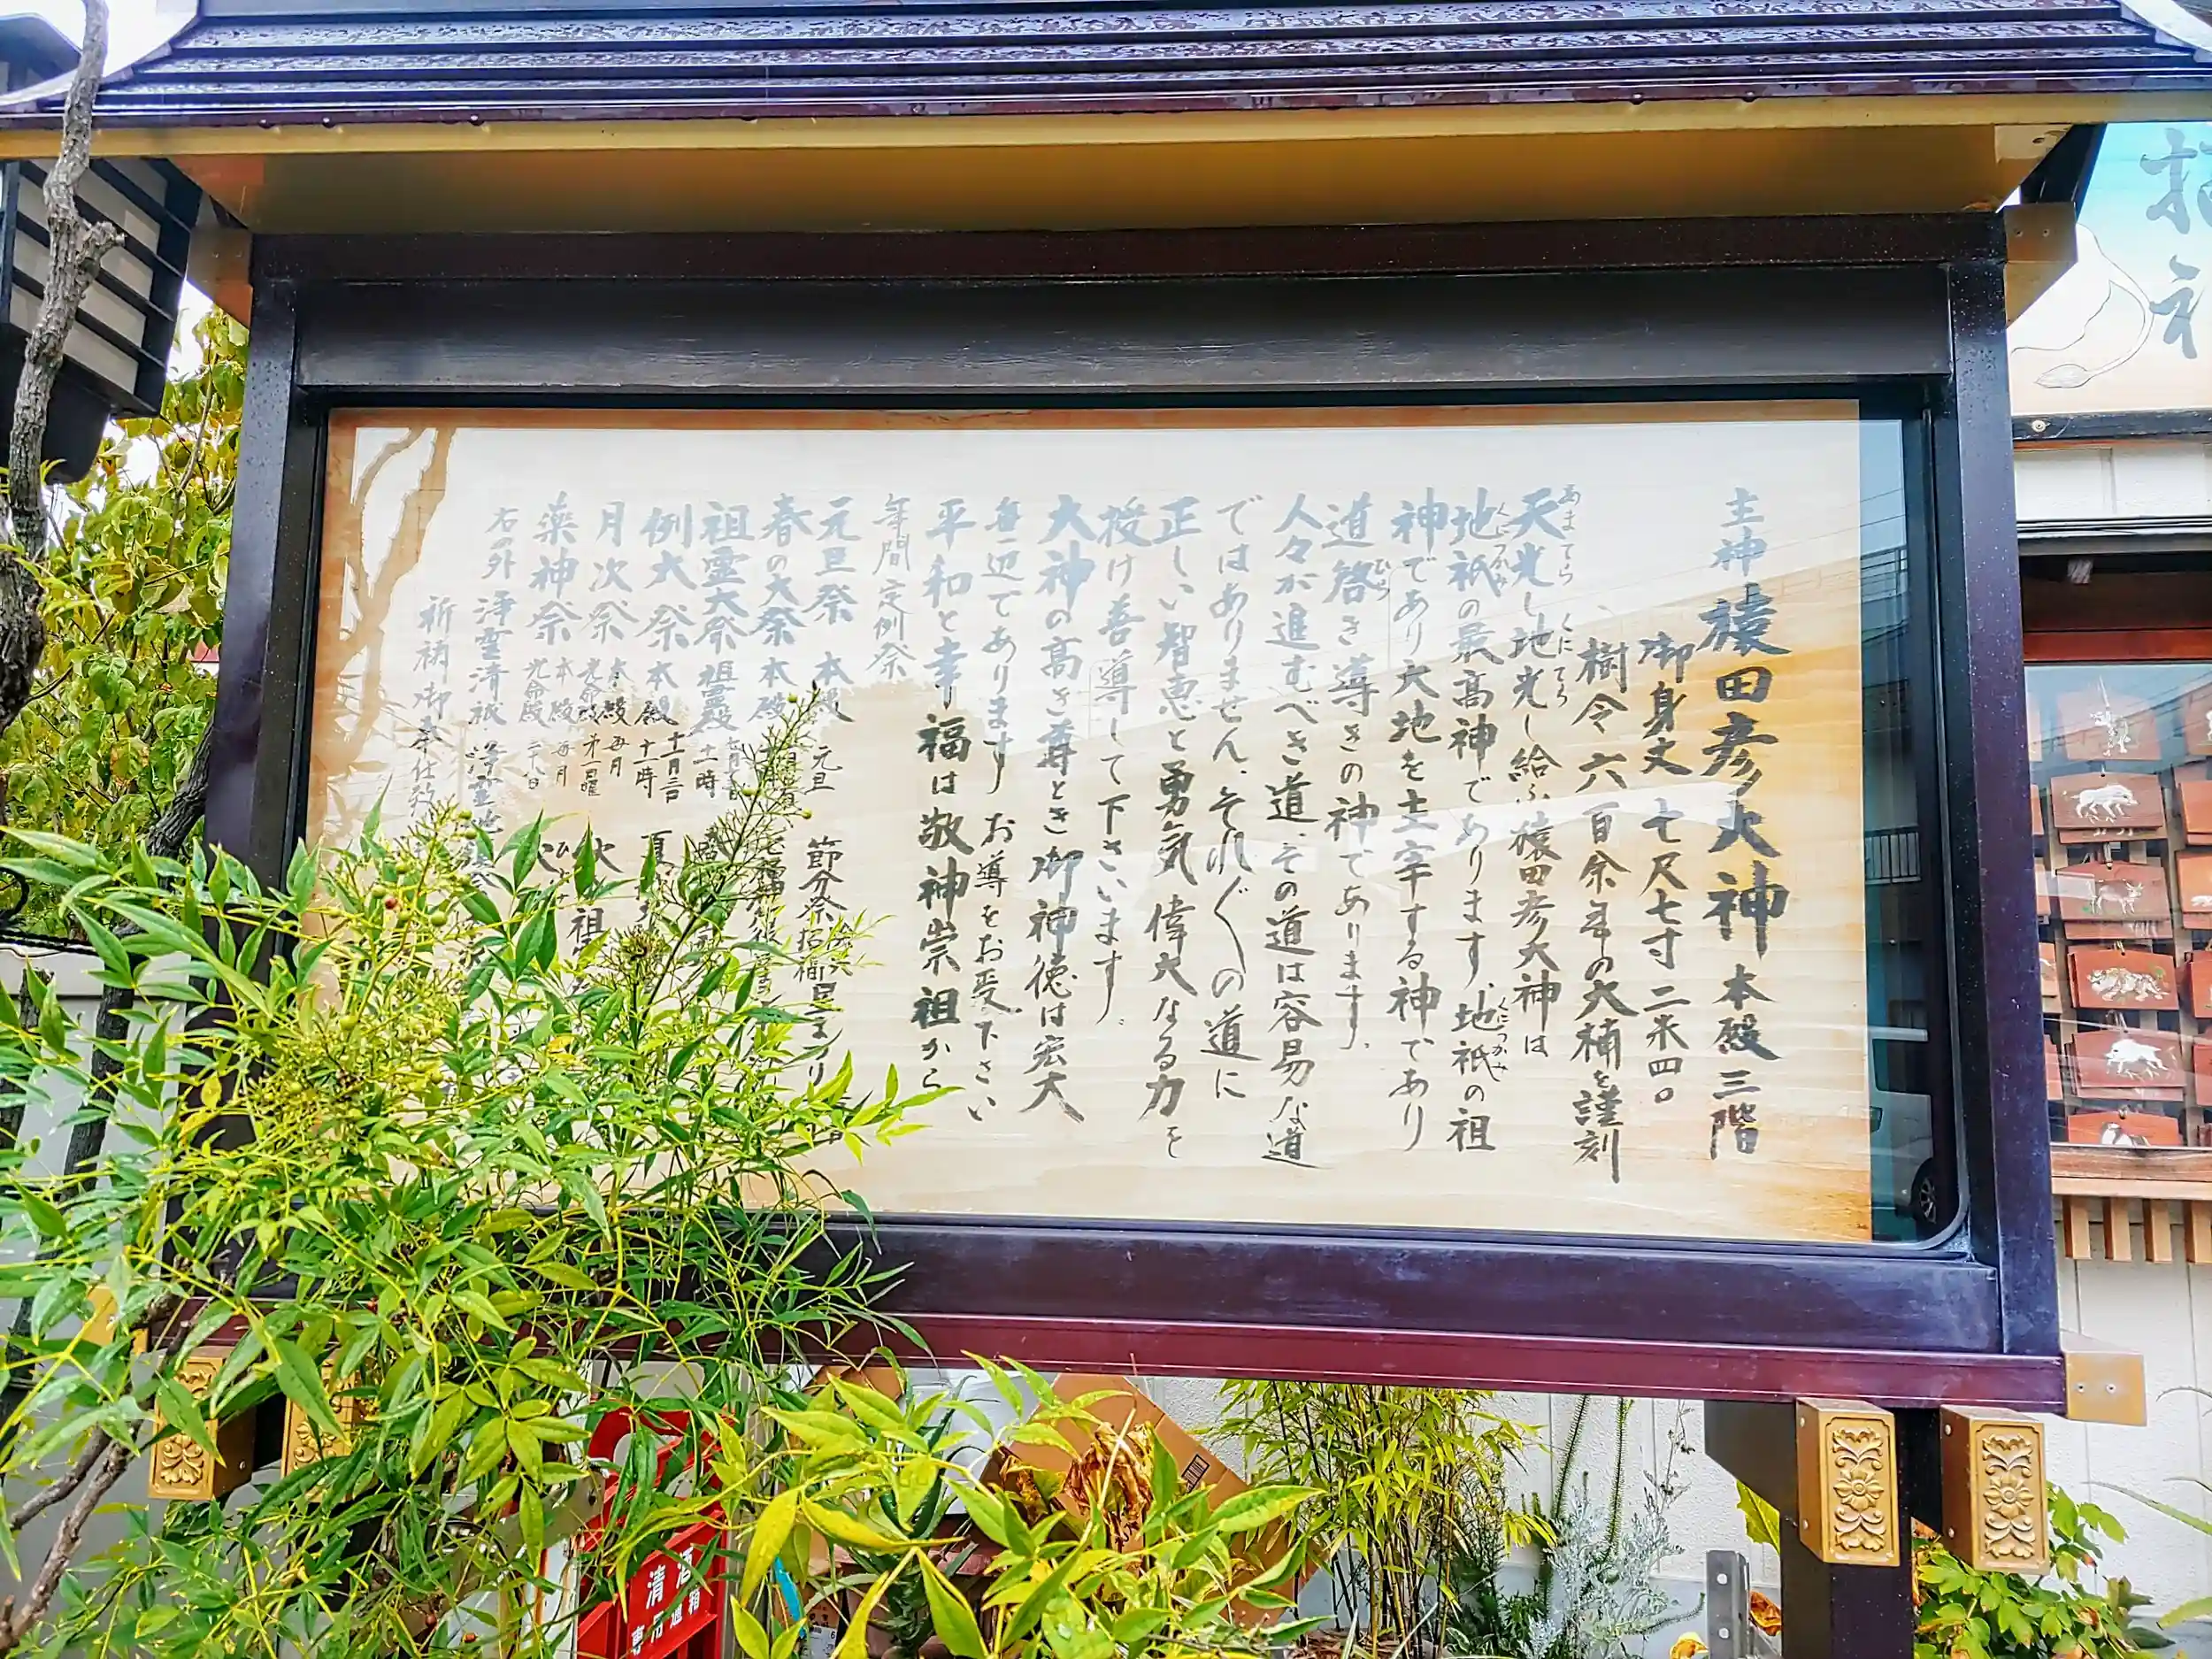 主神 猿田彦大神 本殿三階
御身丈 七尺七寸 二米四〇
樹令六百余年の大楠を謹刻
天光し地光し給ふ猿田彦大神は
あまてら くにてら
地祇の最高神であります、地祇の祖
くにつかみ くにつかみ
神であり大地を主宰する神であり
道啓き導きの神であります、
ひら
人々が進むべき道、その道は容易な道
ではありません、それ〲の道に
正しい智恵と勇気偉大なる力を
授け善導して下さいます。
大神の高き尊とき御神徳は宏大
無辺であります お導をお受下さい
平和と幸福は敬神崇祖から
年間定例祭
元旦祭 本殿 元旦 節分祭
春の大祭 本殿
祖霊大祭 祖霊殿 十一時
例大祭 本殿 十一月三日 十一時
月次祭 本殿 毎月 光命殿 第一日曜
薬神祭 本殿 毎月 光命殿 二十八日
右の外 浄霊清祓
祈祷御奉仕致
清酒
専用通箱